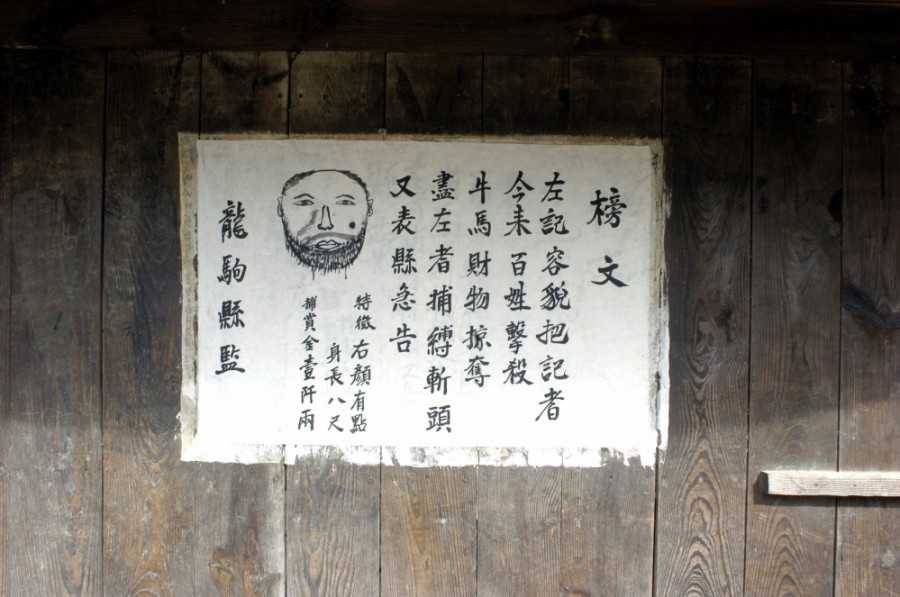 榜文
左記容貌把記者
今未百姓擊殺
牛馬財物掠奪
盡左者捕縛斬頭
又表縣急告
特徵右顏有點
身長八尺
捕賞金壹阡兩
龍駒縣監